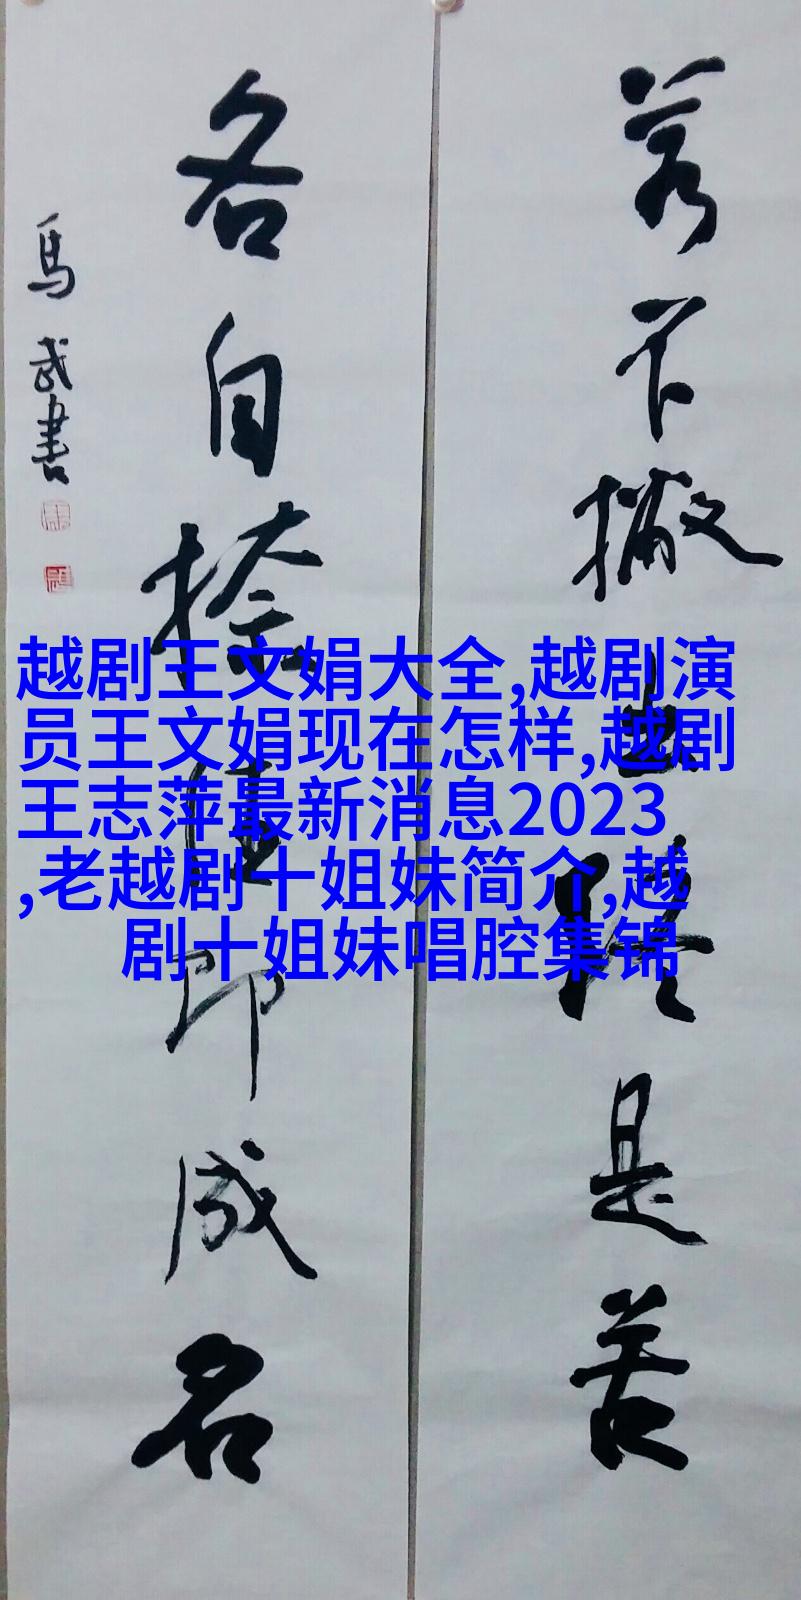 若不撇終是苦
各自捺即成名
馬武書
越剧王文娟大全,越剧演
员王文娟现在怎样,越剧
王志萍最新消息2023
,老越剧十姐妹简介,越
剧十姐妹唱腔集锦